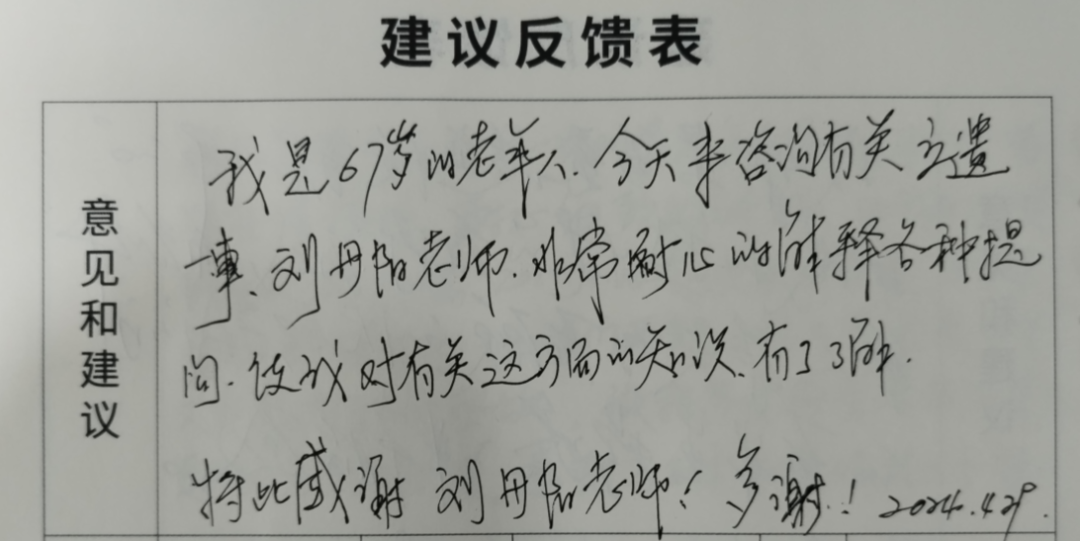 建议反馈表
意见和建议
我是67岁的老年人.今天来咨询有关立遗
一事、刘丹阳老师.非常耐心的解释各种提
问.使我对有关这方面的知识.有了了解.
特此感谢 刘丹阳老师！多谢.！2024.4.29.